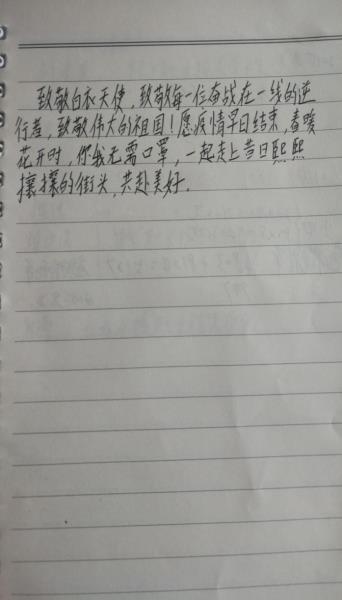 致敬白衣天使，致敬每一位奋战在一线的逆
行者，致敬伟大的祖国！愿疫情早日结束，春暖
花开时，你我无需口罩，一起走上昔日熙熙
攘攘的街头，共赴美好.